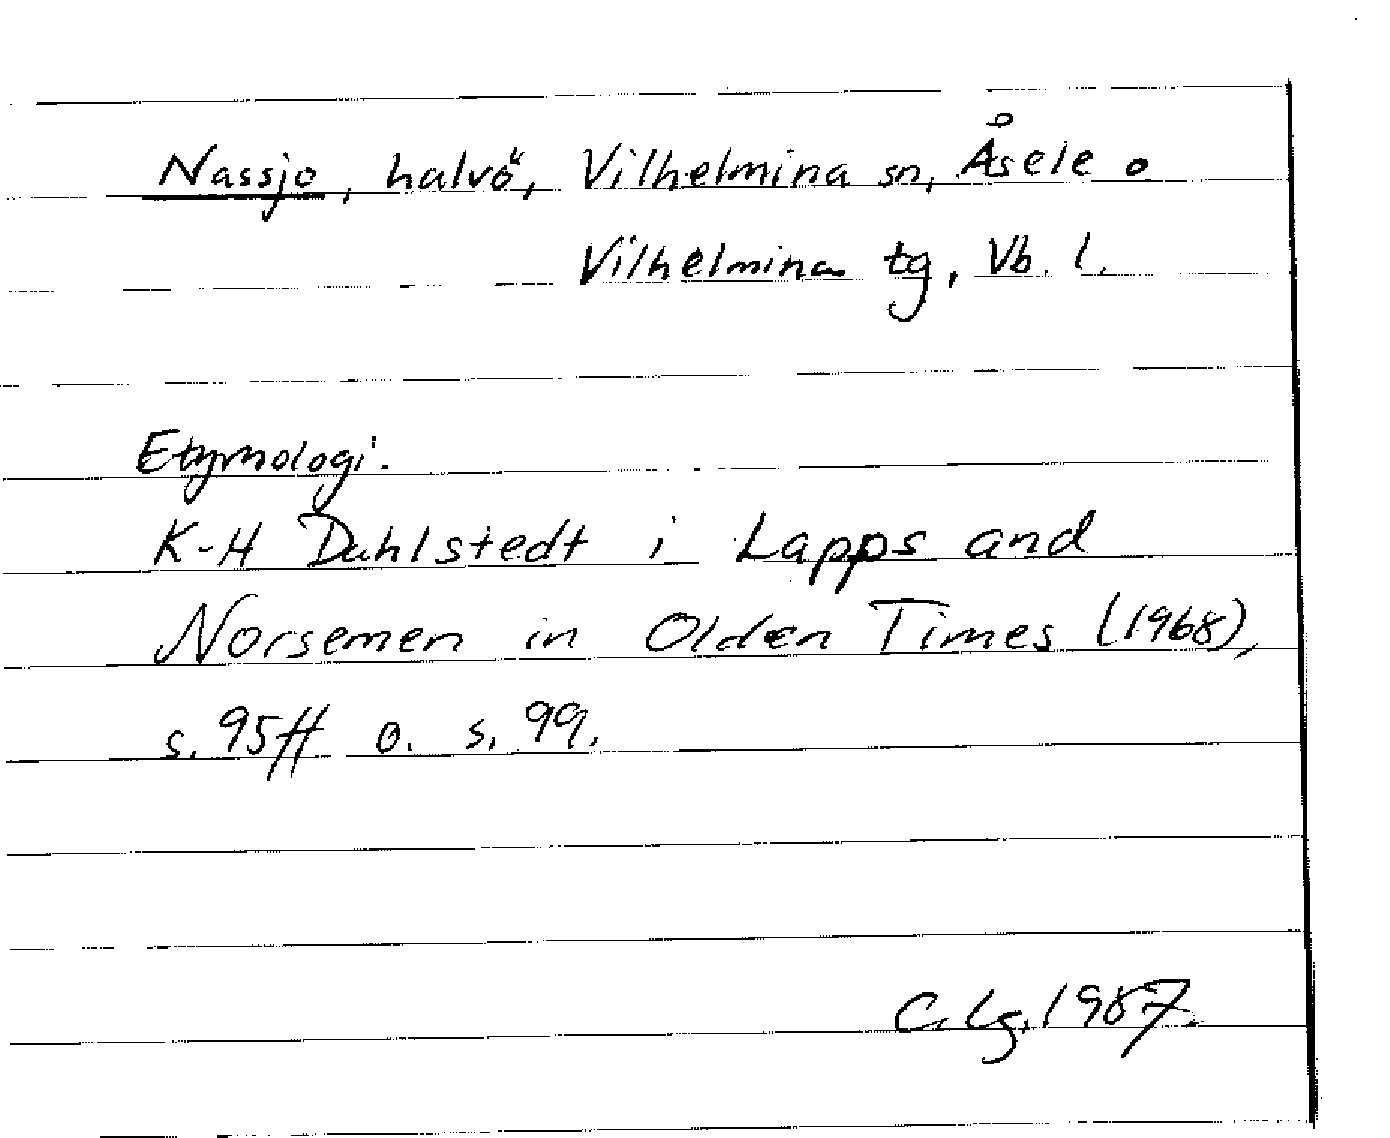 Nassjo, halvö, Vilhelmina sn, Åsele o
Vilhelmina tg, Vb. l.
Etymologi.
K-H Dahlstedt i Lapps and
Norsemen in Olden Times (1968),
s. 95ff o. s. 99.
C. Lg. 1987.